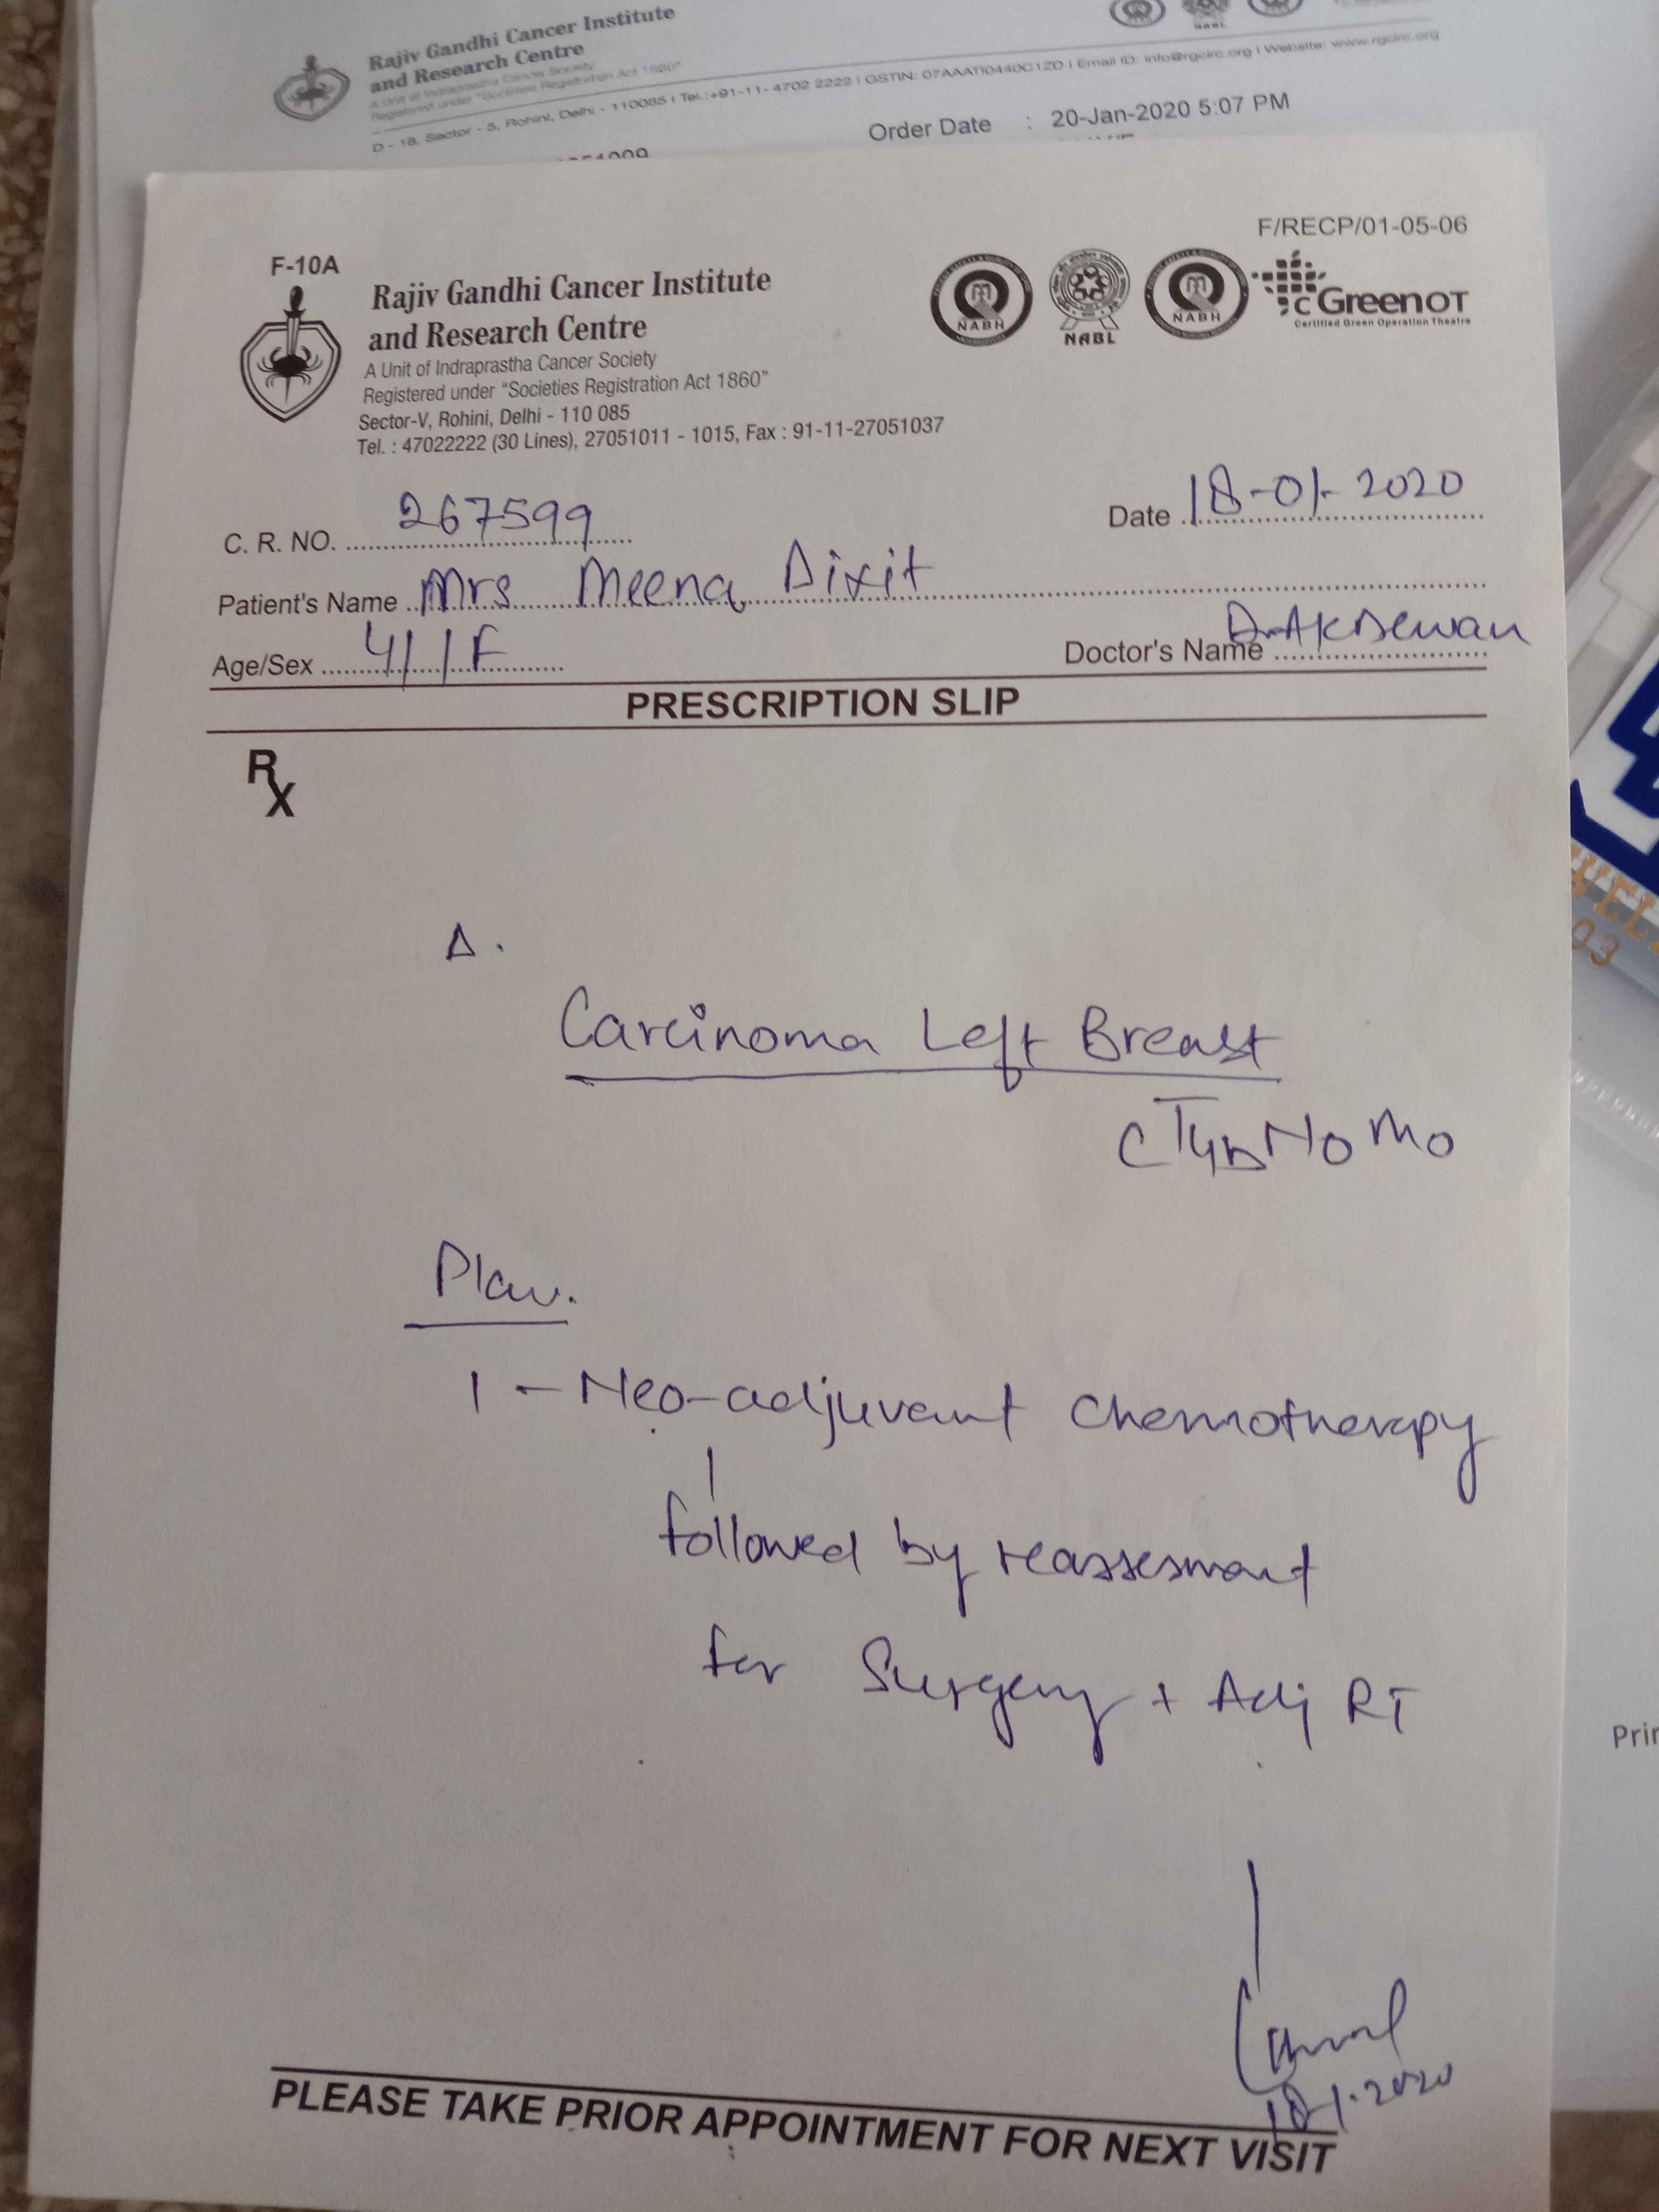 Rajiv Gandhi Cancer Institute
and Research Centre
A Unit of Indraprastha Cancer Society
Registered under "Societies Registration Act 1860"
D - 18, Sector - 5, Rohini, Delhi - 110085 | Tel.:+91-11- 4702 2222 | GSTIN: 07AAATI0440C1ZD | Email ID: info@rgcirc.org | Website: www.rgcirc.org
Order Date : 20-Jan-2020 5:07 PM
F/RECP/01-05-06
F-10A
Rajiv Gandhi Cancer Institute
and Research Centre
A Unit of Indraprastha Cancer Society
Registered under "Societies Registration Act 1860"
Sector-V, Rohini, Delhi - 110 085
Tel. : 47022222 (30 Lines), 27051011 - 1015, Fax : 91-11-27051037
NABH NABL NABH cGreenOT
Certified Green Operation Theatre
C. R. NO. 267599 Date 18-01-2020
Patient's Name Mrs Meena Dixit
Age/Sex 41/F Doctor's Name Dr AK Dewan
PRESCRIPTION SLIP
Rx
Δ.
Carcinoma Left Breast
cT4bN0M0
Plan.
1 - Neo-adjuvant Chemotherapy
followed by reassesment
for Surgery + Adj RT
18/1.2020
PLEASE TAKE PRIOR APPOINTMENT FOR NEXT VISIT